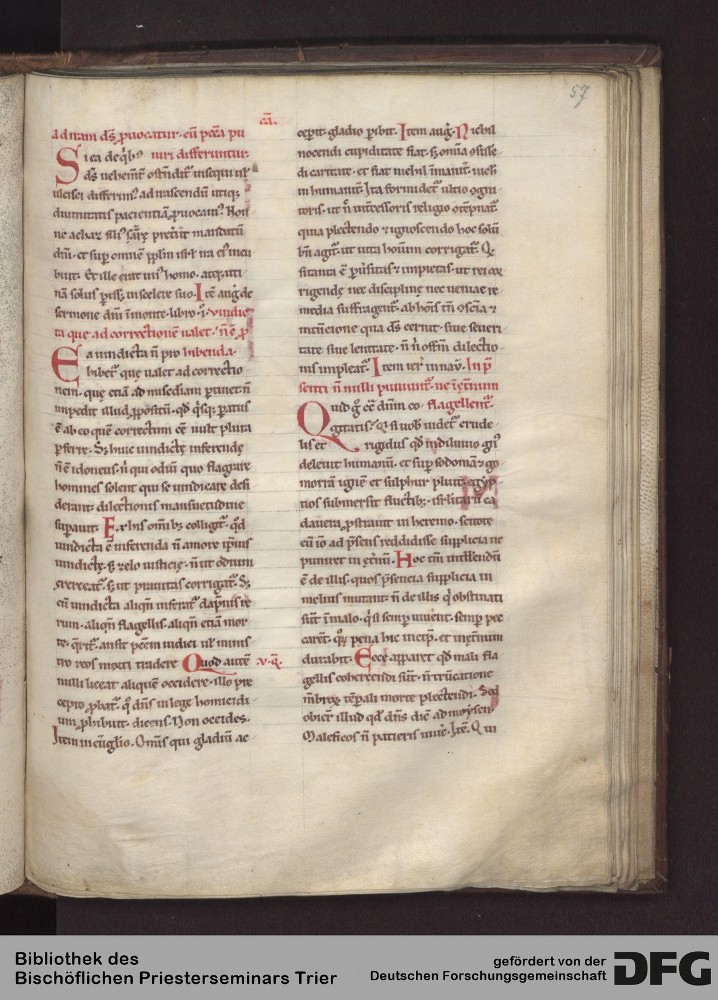 57
ca.
ad iram ds ꝓuocatur. cu pccata pu
Sica de qͥbꝰ niri differuntur
ds uehemt ostendit insequi ul
ulcisci differim? ad nascendu utiq;
diuinitatis pacientiā ꝓuocam? Non
ne achar filiꝰ preterit mandatū
dni. et sup omnē ppl̄m isrl ira eiꝰ incu
buit. Et ille erat unꝰ homo. atq; uti
nā solus in scelere suo. Itē aug̓ de
sermone dn̄i in monte. libro .i. vindic
ta que ad correctionē ualet. n̄ ē ꝓ
Ea uindicta n̄ pro hibenda.
hibet que ualet ad correctio
nem. que etiā ad misc̄diam pertinet. n̄
impedit illud ꝓpositū. qd q̓sq; paratus
ē ab eo quē correctum eē uult plura
ꝑferre. Sȝ huic uindictę inferendę
n̄ ē idoneus. n̄ qui odiū quo flagrare
homines solent qui se uindicare desi
derant. dilectionis mansuetudine
supauit. Ex his om̄ibȝ colligit. qd
uindicta ē inferenda n̄ amore ipsius
uindictę. sȝ zelo iusticię. n̄ ut odium
exerceat. sȝ ut prauitas corrigat. Sȝ
cū uindicta aliqn̄ inferat dāpnis re
rum. aliqn̄ flagellis. aliqn̄ etiā mor
te. q̄rit. an sit pctm̄ iudici ul minis
tro reos morti tradere Quod autē .v.q̄.
nulli liceat aliquē occidere. illo pre
cepto ꝓbat. q̓ dn̄s in lege homicidi
um ꝓhibuit. dicens. Non occides.
Item in eu̓glio. Om̄is qui gladiū ac
ceperit. gladio peribit. Item aug̓. Nichil
nocendi cupiditate fiat. sȝ omnia
caritate. et fiat nichil inmanit. nich
inhumanit. Ita formidet ultio cogni
toris. ut n̄ int̓cessoris religio
quia plectendo ⁊ ignoscendo hoc solū
bn̄ agit. ut uita hominū corrigat. Qͣ
ē puersitas ⁊ impietas. ut
rigende nec discipline nec ueniae re
media suffragent.
intencione qua ds cernit. siue seueri
tate siue lenitate. n̄ n̓ officiū dilectio
nis impleat. Item
senti n̄ nulli puniunt. ne in etnum
Quid g̓ eē dicim co flagellent.
gitatis. si uob uidet crude
lis et rigidus qd in diluuio gn̓s
deleuit humanū. et sup sodomā ⁊ go
morrā ignē et sulphur pluit. egyp
tios submersit fluctibȝ. isrlitarū ca
dauera ꝓstrauit in heremo. scitote
eū io ad psens reddidisse supplicia ne
puniret in et̄nū. Hoc tn̄ intellendū
ē de illis. quos psencia supplicia in
melius mutant. n̄ de illis q̓ obstinati
sūt in malo. q̓ si semp uiuent. semp pec
carēt. qͦꝝ pena hic incepta. et in et̄num
durabit. Ecce apparet qd mali fla
gellis cohercendi sūt. n̄ truncatione
mb̄roꝝ ul te̅pali morte plectendi. Sed
obicit illud qd dn̄s dic̄ ad moysen.
Maleficos n̄ patieris uiu̓e. Itē. Q ui
Bibliothek des
Bischöflichen Priesterseminars Trier
gefördert von der
Deutschen Forschungsgemeinschaft
DFG